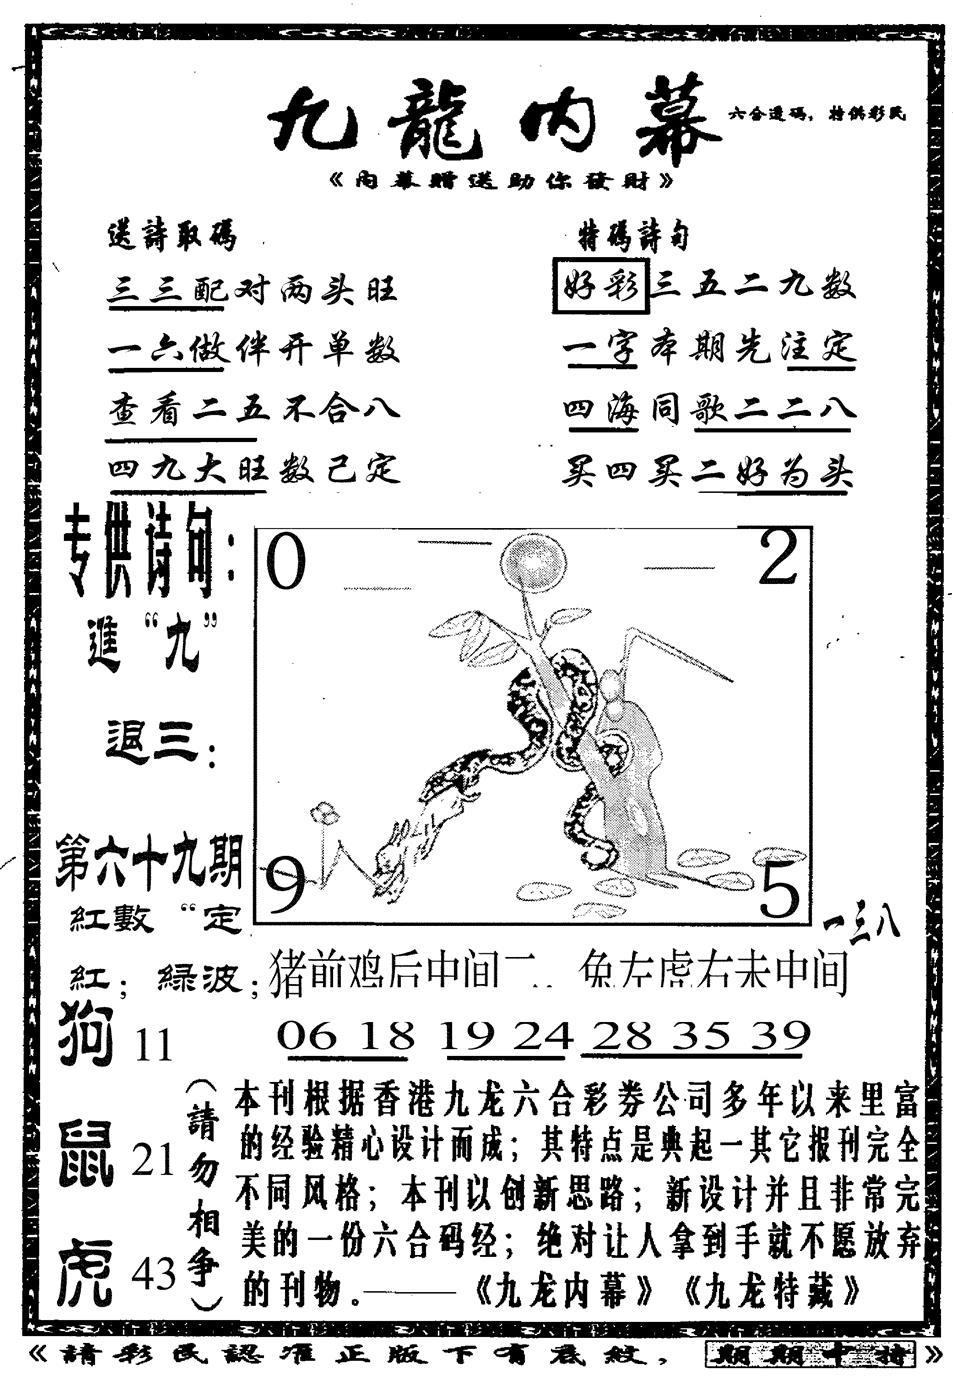 九龍内幕 六合透码，特供彩民
《内幕赠送助你發財》
送詩取碼
三三配对两头旺
一六做伴开单数
查看二五不合八
四九大旺数己定
特碼詩句
好彩三五二九数
一字本期先注定
四海同歌二二八
买四买二好为头
专供诗句：
進“九”
退三：
第六十九期
紅數“定
紅；綠波；
狗 11
鼠 21
虎 43
0 2
9 5
一三八
猪前鸡后中间二 兔左虎右未中间
06 18 19 24 28 35 39
（請勿相争）
本刊根据香港九龙六合彩券公司多年以来里富
的经验精心设计而成；其特点是典起一其它报刊完全
不同风格；本刊以创新思路；新设计并且非常完
美的一份六合码经；绝对让人拿到手就不愿放弃
的刊物。——《九龙内幕》《九龙特藏》
《請彩民認准正版下有底紋，期期中特》